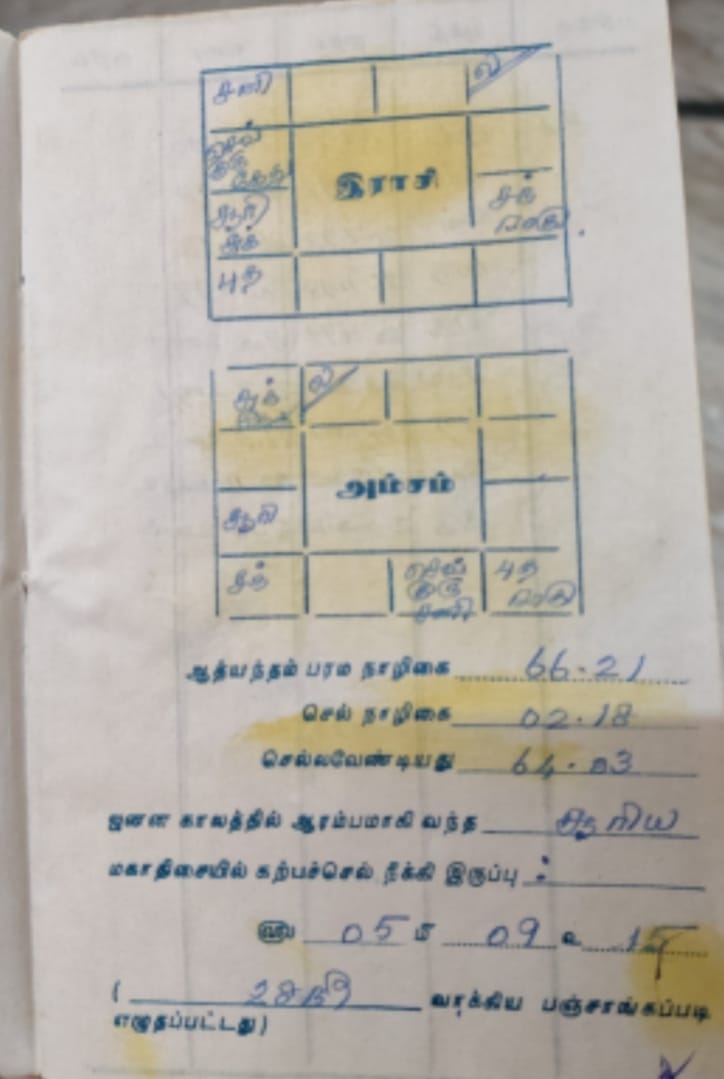 சனி ல
செவ்
குரு
கேது
இராசி
சூரி
சுக்
சந்
ராகு
புத
சுக் ல
அம்சம்
சூரி
சந் செவ் புத
குரு ராகு
சனி
ஆத்யந்தம் பரம நாழிகை 66-21
செல் நாழிகை 02-18
செல்லவேண்டியது 64-03
ஜனன காலத்தில் ஆரம்பமாகி வந்த சூரிய
மகாதிசையில் கற்பச்செல் நீக்கி இருப்பு :
௵ 05 ௴ 09 ௳ 15
( வாக்கிய பஞ்சாங்கப்படி
எழுதப்பட்டது)